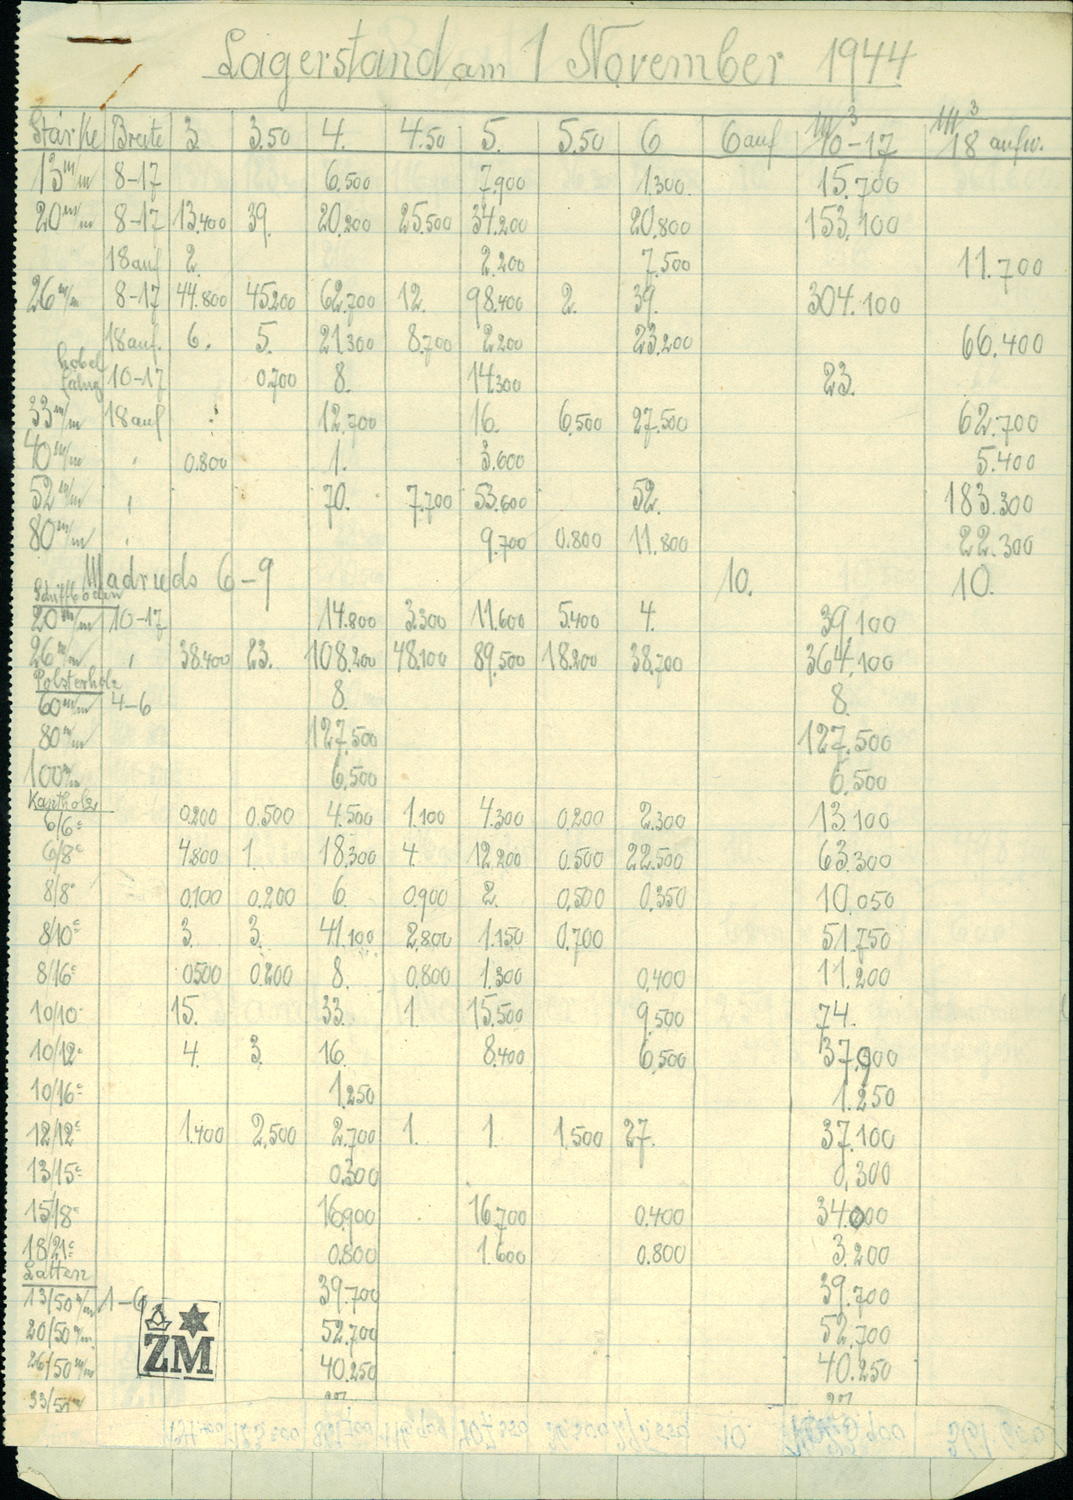 Lagerstand am 1 November 1944
Stärke Breite 3 3.50 4. 4.50 5. 5.50 6 6 auf m³ 10-17 m³ 18 aufw.
13 m/m 8-17 6.500 7.900 1.300. 15.700
20 m/m 8-17 13.400 39. 20.200 25.500 34.200 20.800 153.100
18 auf 2. 2.200 7.500 11.700
26 m/m 8-17 44.800 45.200 62.700 12. 98.400 2. 39. 304.100
18 auf. 6. 5. 21.300 8.700 2.200 23.200 66.400
10-17 0.700 8. 14.300 23.
33 m/m 18 auf 12.700 16. 6.500 27.500 62.700
40 m/m 0.800 1. 3.600 5.400
52 m/m 70. 7.700 53.600 52. 183.300
80 m/m 9.700 0.800 11.800 22.300
Madrieds 6-9 10. 10.
20 m/m 10-17 14.800 3.300 11.600 5.400 4. 39.100
26 m/m 38.400 23. 108.200 48.100 89.500 18.200 38.700 364.100
Polsterholz
60 m/m 4-6 8. 8.
80 m/m 127.500 127.500
100 m/m 6.500 6.500
Kantholz
6/6 c 0.200 0.500 4.500 1.100 4.300 0.200 2.300 13.100
6/8 c 4.800 1. 18.300 4. 12.200 0.500 22.500 63.300
8/8 c 0.100 0.200 6 0.900 2. 0.500 0.350 10.050
8/10 c 3. 3. 41.100 2.800 1.150 0.700 51.750
8/16 c 0.500 0.200 8. 0.800 1.300 0.400 11.200
10/10 15. 33. 1. 15.500 9.500 74.
10/12 c 4. 3. 16. 8.400 6.500 37.900
10/16 c 1.250 1.250
12/12 c 1.400 2.500 2.700 1. 1. 1.500 27. 37.100
13/15 c 0.300 0.300
15/18 c 16.900 16.700 0.400 34.000
18/21 c 0.800 1.600 0.800 3.200
Latten
13/50 m/m 1-6 39.700 39.700
20/50 m/m 52.700 52.700
26/50 m/m 40.250 40.250
ŻM
33/50